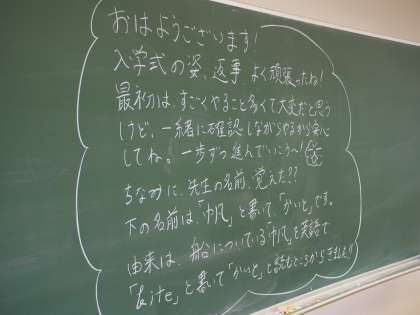 おはようございます!
入学式の姿、返事、よく頑張ったね!
最初は、すごくやること多くて大変だと思う
けど、一緒に確認しながらやるから安心
してね。一歩ずつ進んでいこう〜!
ちなみに、先生の名前、覚えた??
下の名前は「帆」と書いて、「かいと」です。
由来は、船についている「帆」を英語で、
「kite」と書いて「かいと」と読むところからきました!!